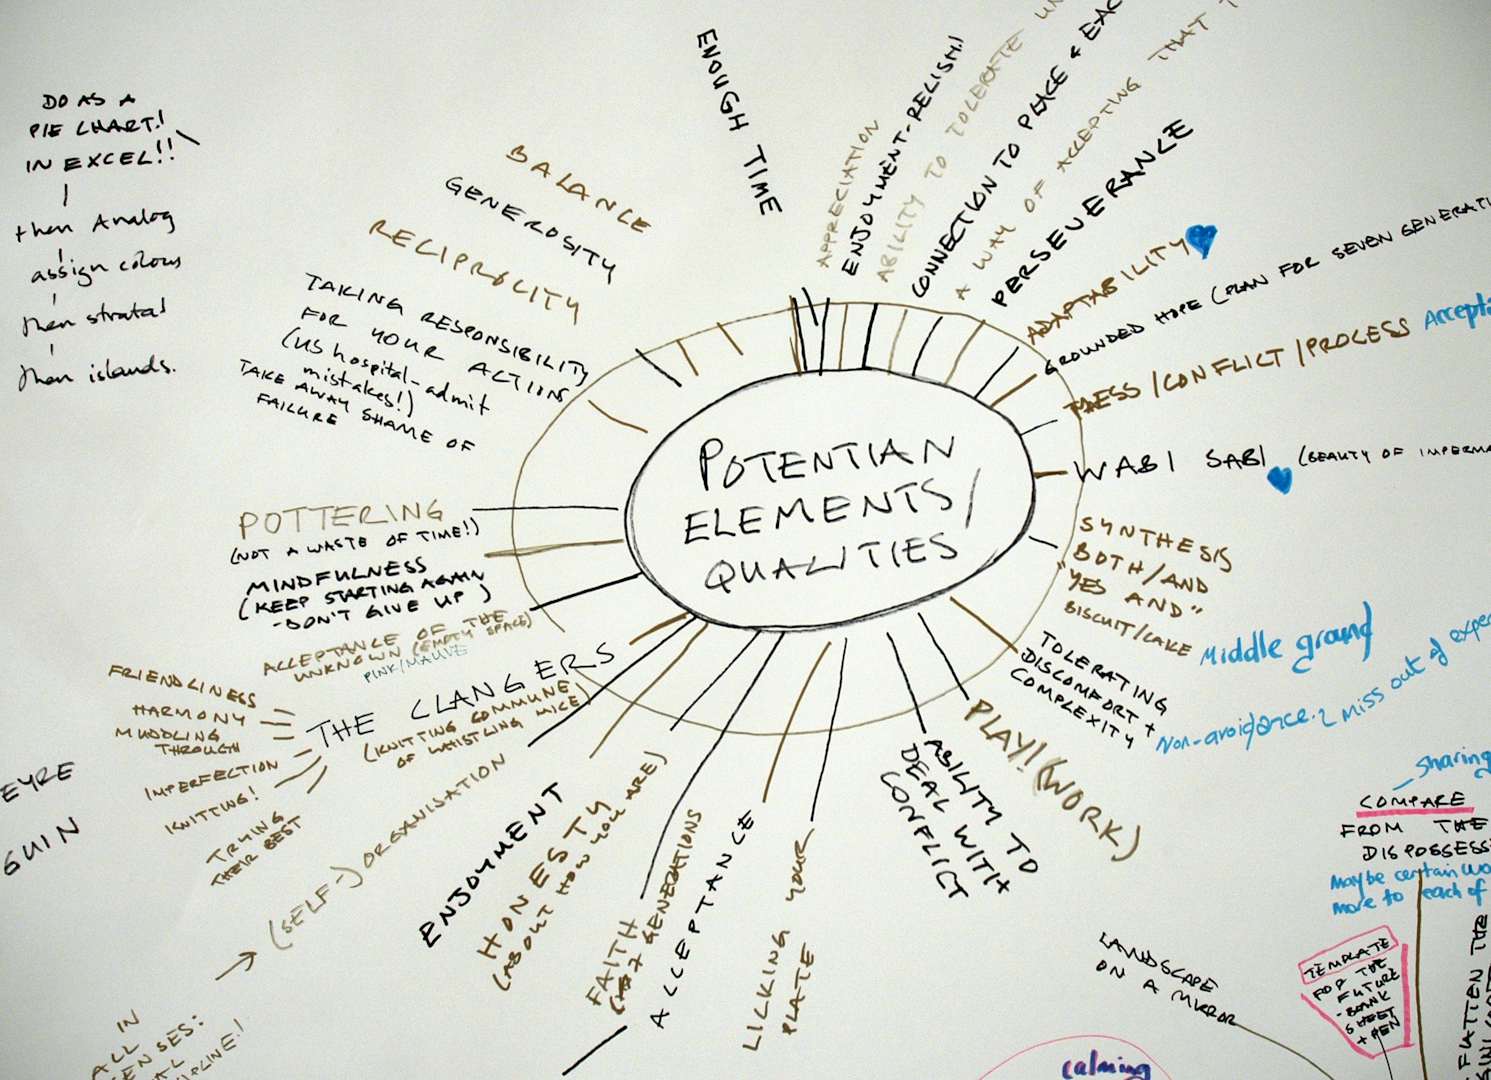 DO AS A
PIE CHART!
IN EXCEL!!
then Analog
assign colours
then strata!
then islands.
ENOUGH TIME
BALANCE
GENEROSITY
RECIPROCITY
TAKING RESPONSIBILITY
FOR YOUR ACTIONS
(US hospital-admit
mistakes!)
TAKE AWAY SHAME OF
FAILURE
APPRECIATION
ENJOYMENT-RELISH!
ABILITY TO TOLERATE
CONNECTION TO PLACE &
A WAY OF ACCEPTING THAT
PERSEVERANCE
ADAPTABILITY
GROUNDED HOPE (PLAN FOR SEVEN
MESS/CONFLICT/PROCESS
WABI SABI (BEAUTY OF
POTENTIAN
ELEMENTS/
QUALITIES
SYNTHESIS
BOTH/AND
"YES AND"
BISCUIT/CAKE
Middle ground
TOLERATING
DISCOMFORT +
COMPLEXITY
Non-avoidance. Miss out of
PLAY! (WORK)
ABILITY TO
DEAL WITH
CONFLICT
LICKING YOUR
PLATE
ACCEPTANCE
FAITH
7 GENERATIONS
HONESTY
(ABOUT HOW YOU ARE)
ENJOYMENT
(SELF-) ORGANISATION
THE CLANGERS
(KNITTING COMMUNE
OF WHISTLING MICE)
FRIENDLINESS
HARMONY
MUDDLING
THROUGH
IMPERFECTION
KNITTING!
TRYING
THEIR BEST
POTTERING
(NOT A WASTE OF TIME!)
MINDFULNESS
(KEEP STARTING AGAIN
-DON'T GIVE UP)
ACCEPTANCE OF THE
UNKNOWN (EMPTY SPACE)
PINK/MAUVE
EYRE
GUIN
IN
ALL
Sharing
COMPARE
FROM THE
maybe certain
more to each of
LANDSCAPE
ON A MIRROR
TEMPLATE
FOR THE
FUTURE
-BLANK
SHEET
+ PEN
FLATTEN THE
calming